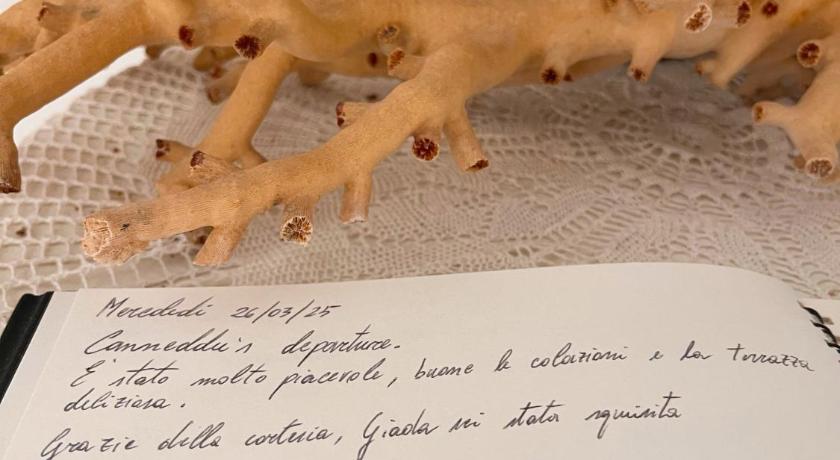 Mercoledì 26/03/25
Canneddu's departure.
E' stato molto piacevole, buone le colazioni e la terrazza
deliziosa.
Grazie della cortesia, Giada sei stata squisita